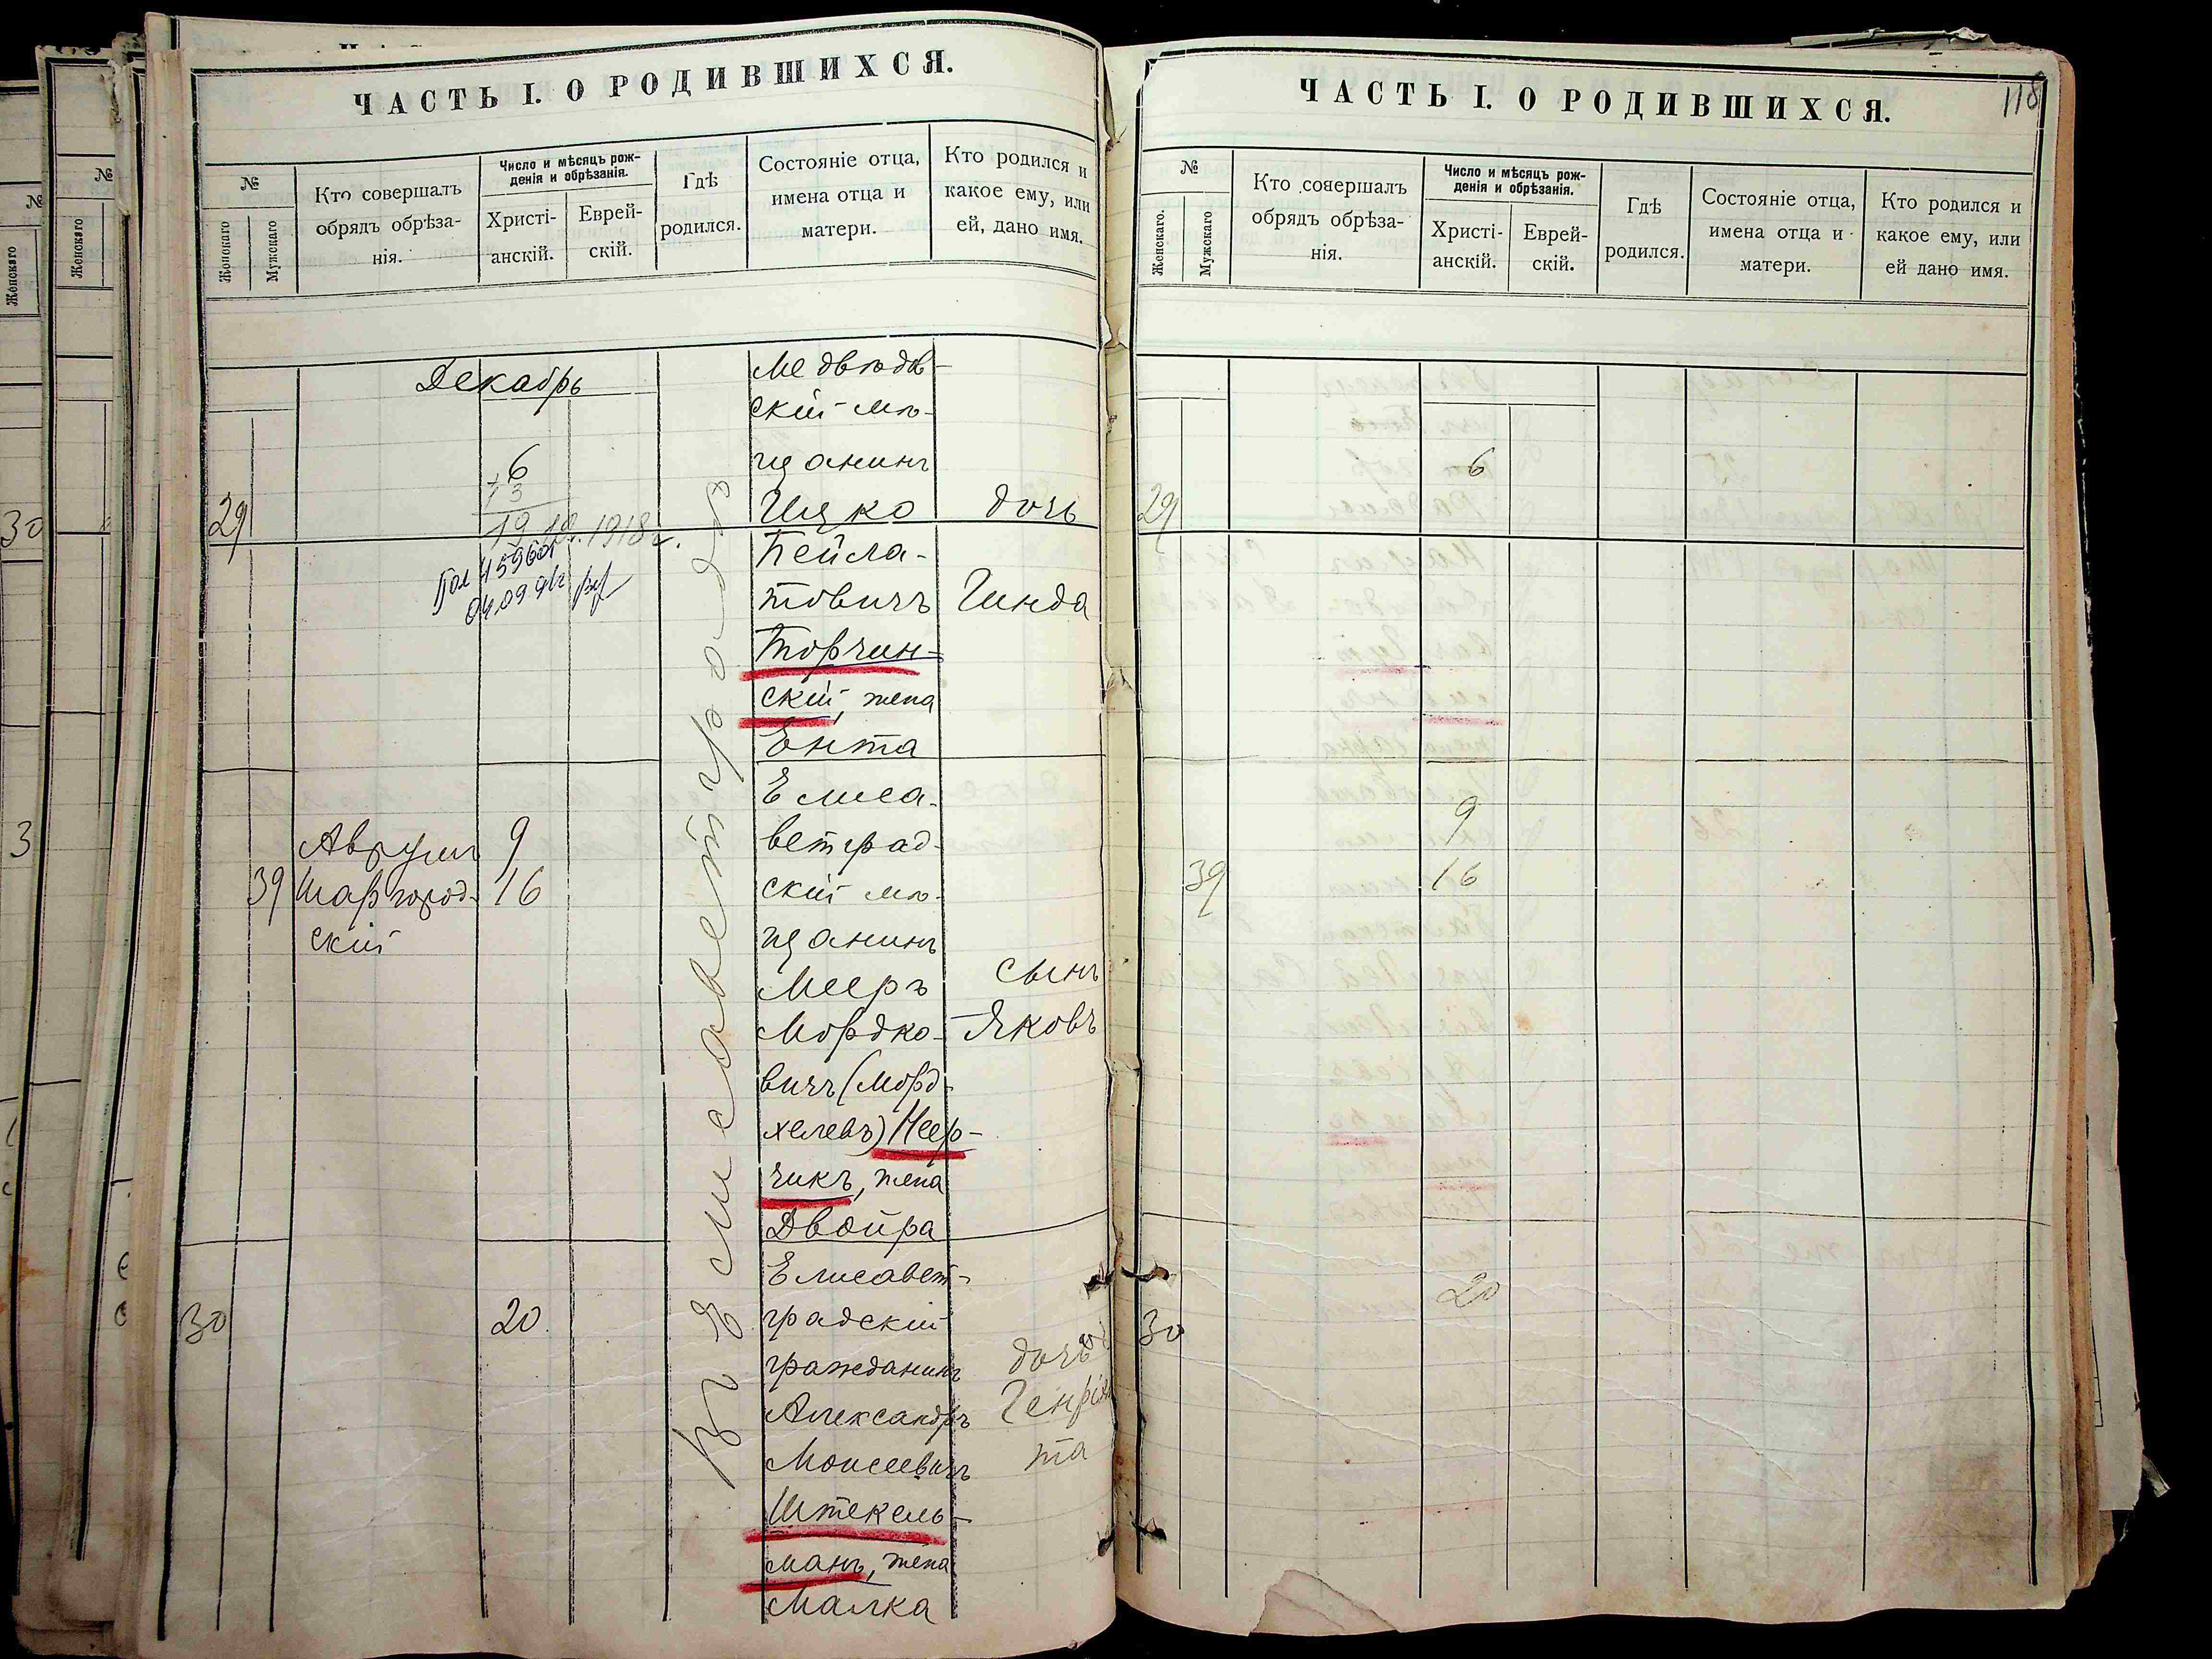 ЧАСТЬ I. О РОДИВШИХСЯ.
№
Женскаго
Мужскаго
Кто совершалъ
обрядъ обрѣза-
нія.
Число и мѣсяцъ рож-
денія и обрѣзанія.
Христі-
анскій.
Еврей-
скій.
Гдѣ
родился.
Состояніе отца,
имена отца и
матери.
Кто родился и
какое ему, или
ей, дано имя.
Декабрь
29
6
+13
19.12.1918 г.
04.09.91г
Въ Елисаветградѣ
Медвѣдв-
скій мѣ-
щанинъ
Ицко
Пейса-
товичъ
Торчин-
скій, жена
Ента
дочь
Гинда
39
Аврумъ
Шаргород-
скій
9
16
Елиса-
ветград-
скій мѣ-
щанинъ
Мееръ
Мордко-
вичъ (Морд-
хелевъ) Неер-
чикъ, жена
Двойра
сынъ
Яковъ
30
20
Елисавет-
градскій
гражданинъ
Александръ
Моисеевичъ
Штекель-
манъ, жена
Малка
дочь
Генріэ
та
ЧАСТЬ I. О РОДИВШИХСЯ.
118
№
Женскаго.
Мужскаго
Кто совершалъ
обрядъ обрѣза-
нія.
Число и мѣсяцъ рож-
денія и обрѣзанія.
Христі-
анскій.
Еврей-
скій.
Гдѣ
родился.
Состояніе отца,
имена отца и
матери.
Кто родился и
какое ему, или
ей дано имя.
29
6
39
9
16
30
20